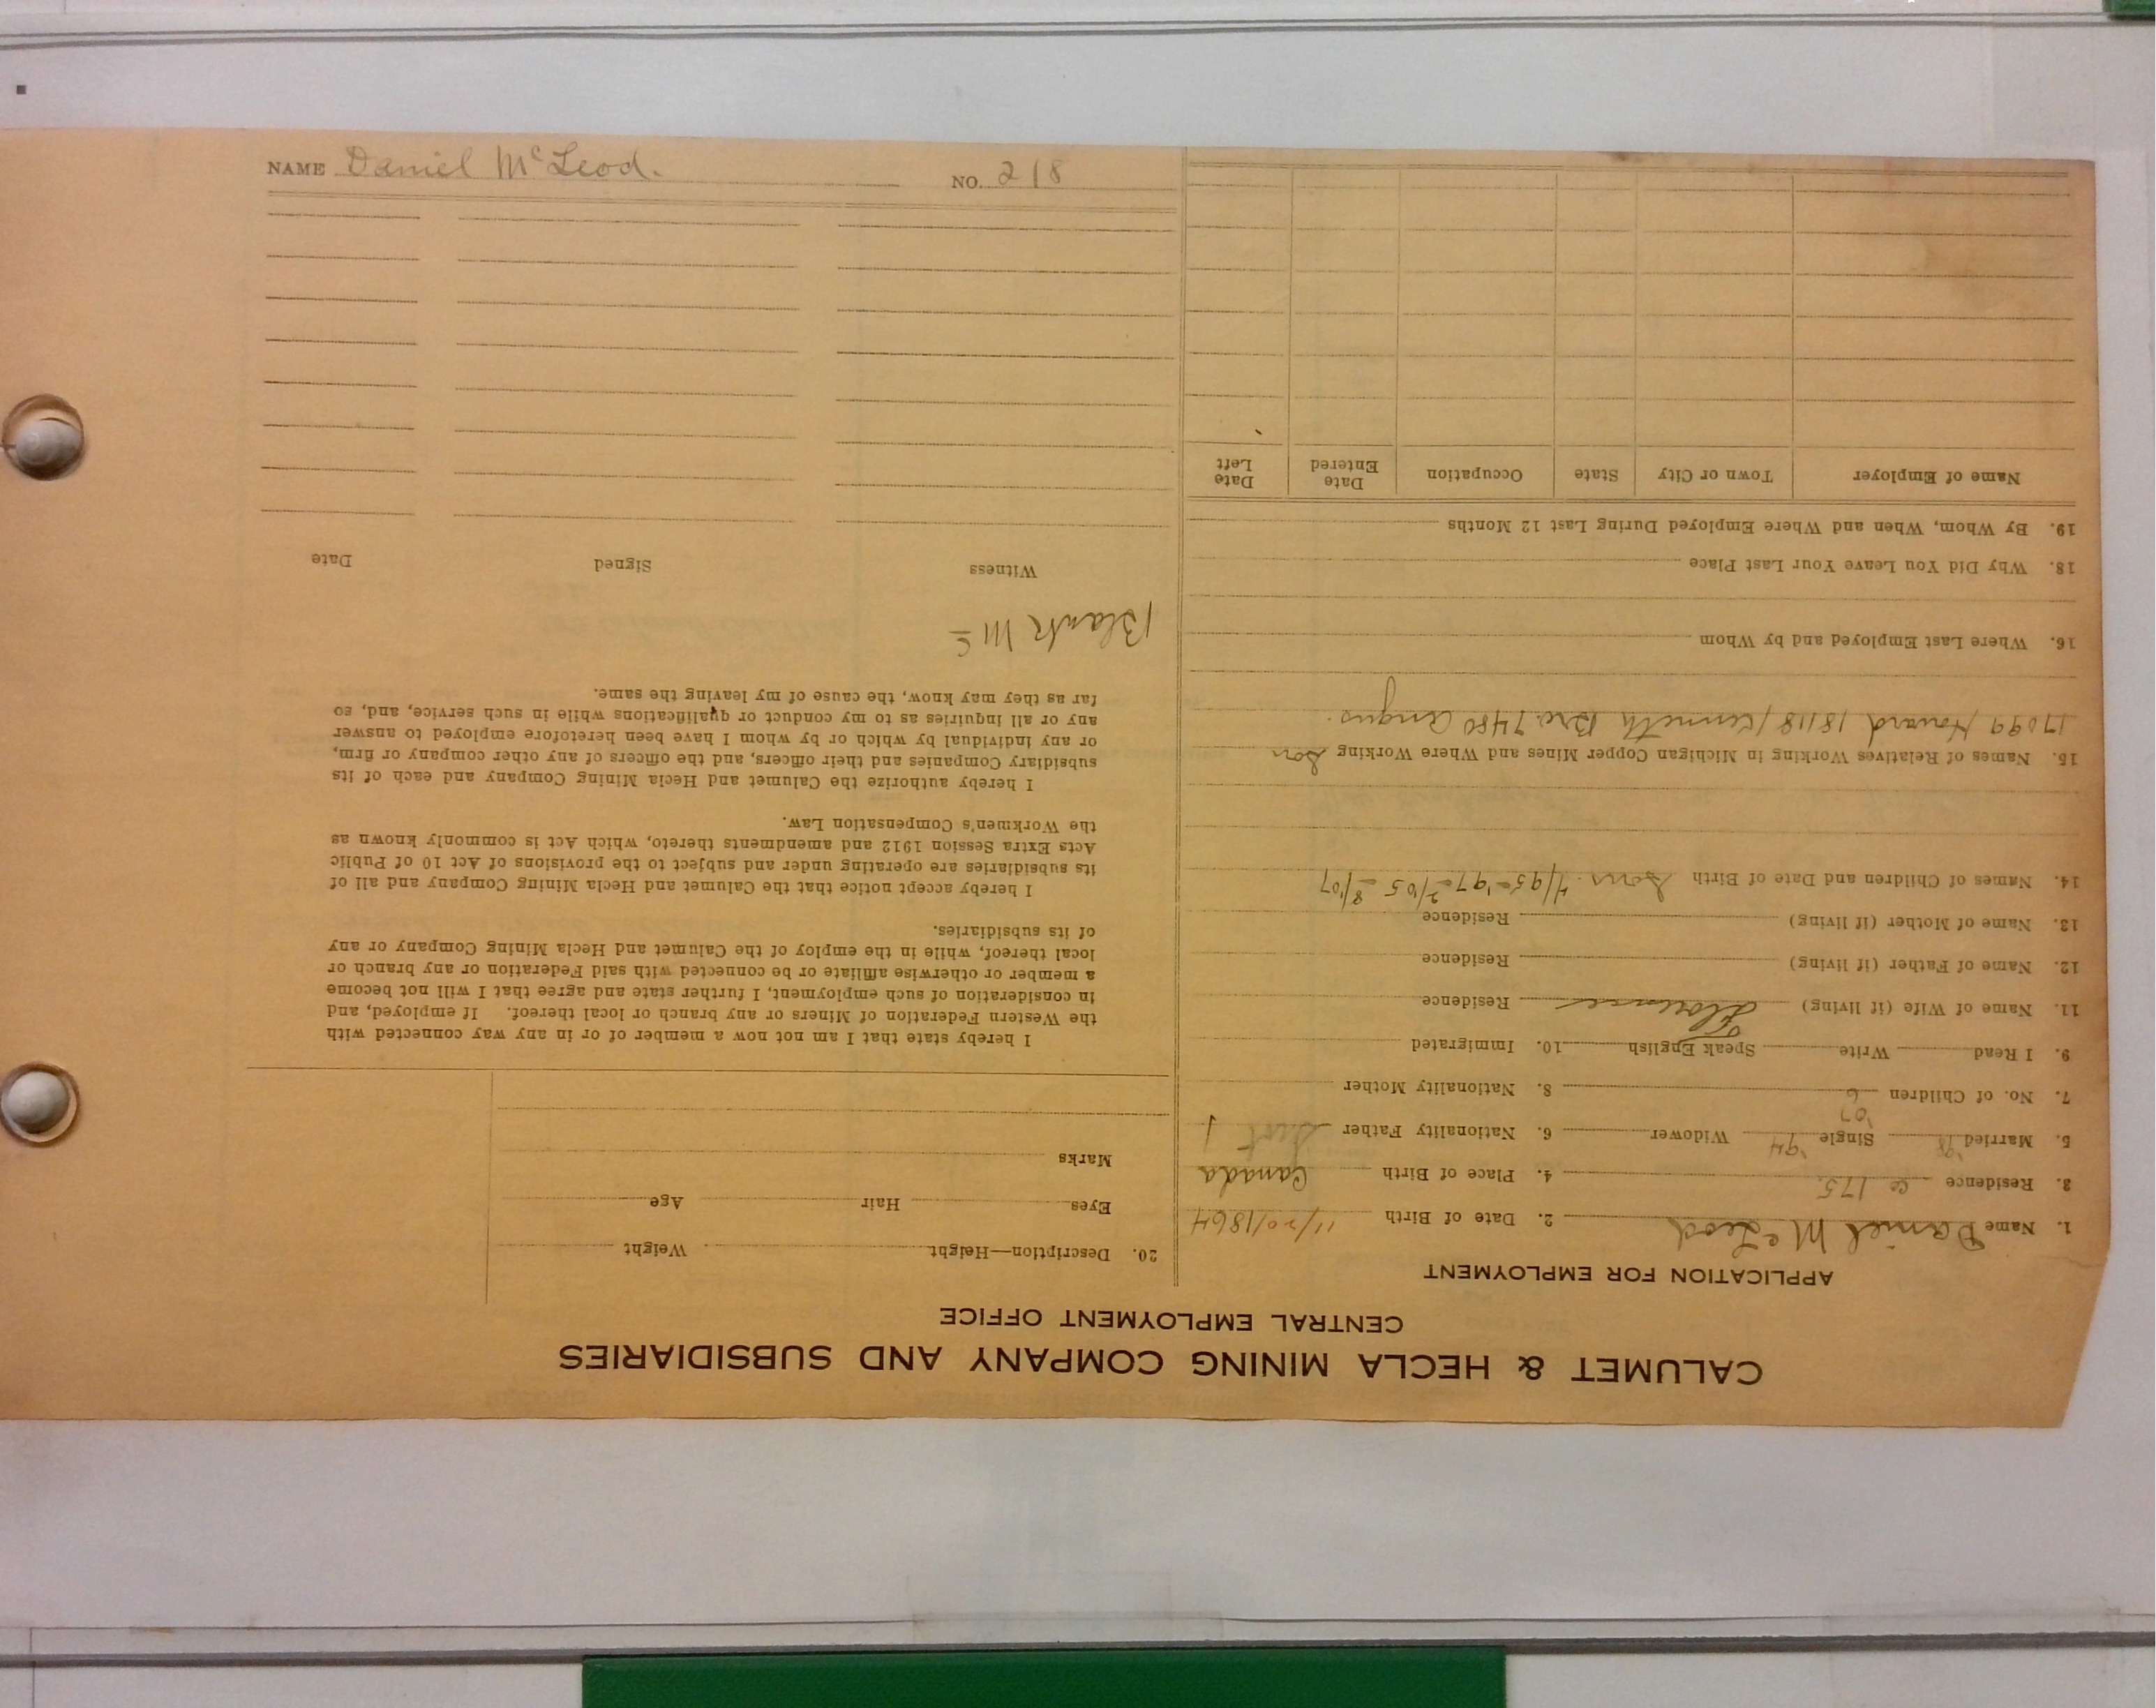 CALUMET & HECLA MINING COMPANY AND SUBSIDIARIES
CENTRAL EMPLOYMENT OFFICE
APPLICATION FOR EMPLOYMENT
1. Name Daniel McLeod 2. Date of Birth 11/20/1864
3. Residence Co 175. 4. Place of Birth Canada
5. Married '98 Single '94 Widower 6. Nationality Father
'07
7. No. of Children 6 8. Nationality Mother
9. I Read Write Speak English 10. Immigrated
11. Name of Wife (if living) Florence Residence
12. Name of Father (if living) Residence
13. Name of Mother (if living) Residence
14. Names of Children and Date of Birth Sons. 4/95 - '97 - 2/05 - 8/07
15. Names of Relatives Working in Michigan Copper Mines and Where Working Son
17099 Howard 18118 Kenneth Bro. 7480 Angus.
16. Where Last Employed and by Whom
18. Why Did You Leave Your Last Place
19. By Whom, When and Where Employed During Last 12 Months
Name of Employer Town or City State Occupation Date Entered Date Left
20. Description—Height Weight
Eyes Hair Age
Marks
I hereby state that I am not now a member of or in any way connected with
the Western Federation of Miners or any branch or local thereof. If employed, and
in consideration of such employment, I further state and agree that I will not become
a member or otherwise affiliate or be connected with said Federation or any branch or
local thereof, while in the employ of the Calumet and Hecla Mining Company or any
of its subsidiaries.
I hereby accept notice that the Calumet and Hecla Mining Company and all of
its subsidiaries are operating under and subject to the provisions of Act 10 of Public
Acts Extra Session 1912 and amendments thereto, which Act is commonly known as
the Workmen's Compensation Law.
I hereby authorize the Calumet and Hecla Mining Company and each of its
subsidiary Companies and their officers, and the officers of any other company or firm,
or any individual by which or by whom I have been heretofore employed to answer
any or all inquiries as to my conduct or qualifications while in such service, and, so
far as they may know, the cause of my leaving the same.
Blank Mc
Witness Signed Date
NAME Daniel McLeod. NO. 218